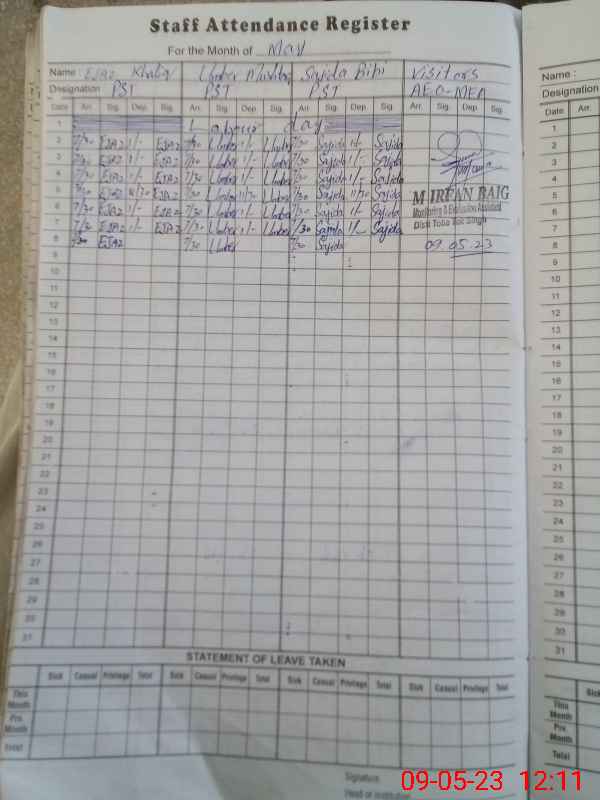 Staff Attendance Register
For the Month of May
Name : EJAZ Khaliq Umber Mushtaq Sajida Bibi Visitors
Designation PST PST PST AEO-MEA
Date Arr. Sig. Dep. Sig. Arr. Sig. Dep. Sig. Arr. Sig. Dep. Sig. Arr. Sig. Dep. Sig.
1 Labour day
2 7/30 EJAZ 1/- EJAZ 7/30 Umber 1/- Umber 7/30 Sajida 1/- Sajida
3 7/30 EJAZ 1/- EJAZ 7/30 Umber 1/- Umber 7/30 Sajida 1/- Sajida
4 7/30 EJAZ 1/- EJAZ 7/30 Umber 1/- Umber 7/30 Sajida 1/- Sajida
5 7/30 EJAZ 11/30 EJAZ 7/30 Umber 11/30 Umber 7/30 Sajida 11/30 Sajida
M IRFAN BAIG
Monitoring & Evaluation Assistant
Distt Toba Tek Singh
6 7/30 EJAZ 1/- EJAZ 7/30 Umber 1/- Umber 7/30 Sajida 1/- Sajida
7 7/30 EJAZ 1/- EJAZ 7/30 Umber 1/- Umber 7/30 Sajida 1/- Sajida
8 7/30 EJAZ 7/30 Umber 7/30 Sajida 09.05.23
9
10
11
12
13
14
15
16
17
18
19
20
21
22
23
24
25
26
27
28
29
30
31
STATEMENT OF LEAVE TAKEN
Sick Casual Privilege Total Sick Casual Privilege Total Sick Casual Privilege Total Sick Casual Privilege Total
This Month
Pre. Month
Total
Signature
Head of Institution
Name :
Designation
Date Arr.
1
2
3
4
5
6
7
8
9
10
11
12
13
14
15
16
17
18
19
20
21
22
23
24
25
26
27
28
29
30
31
Sick
This Month
Pre. Month
Total
09-05-23 12:11